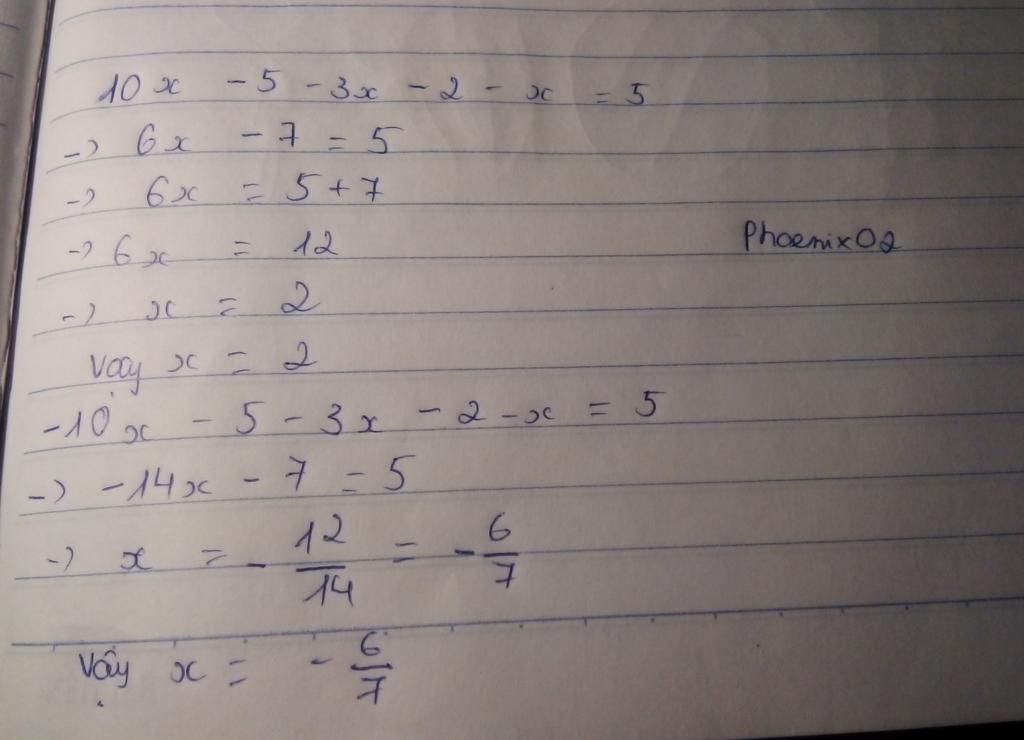 10x - 5 - 3x - 2 - x = 5
-> 6x - 7 = 5
-> 6x = 5 + 7
-> 6x = 12
Phoenix02
-> x = 2
Vậy x = 2
-10x - 5 - 3x - 2 - x = 5
-> -14x - 7 = 5
-> x = - 12/14 = - 6/7
Vậy x = - 6/7